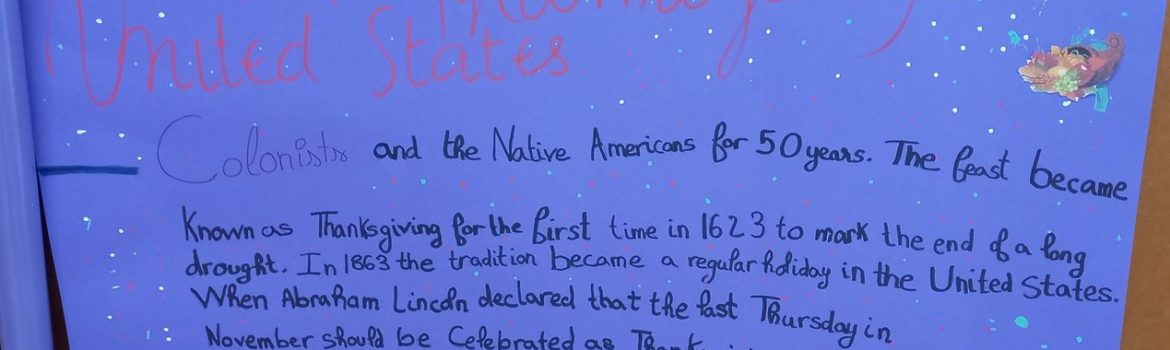 Thanksgiving
United States
Colonists and the Native Americans for 50 years. The feast became
Known as Thanksgiving for the first time in 1623 to mark the end of a long
drought. In 1863 the tradition became a regular holiday in the United States.
When Abraham Lincoln declared that the last Thursday in
November should be Celebrated as